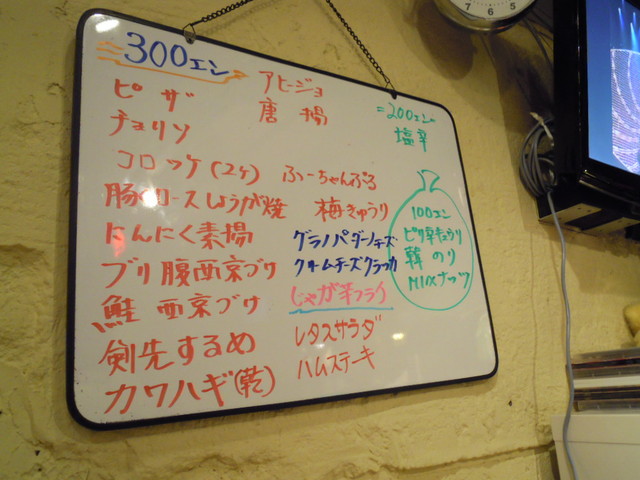 300エン
ピザ
チョリソ
コロッケ(2ヶ)
豚ロースしょうが焼
にんにく素揚
ブリ腹西京づけ
鮭西京づけ
剣先するめ
カワハギ(乾)
アヒージョ
唐揚
ふーちゃんぷる
梅きゅうり
グラノパダーノチーズ
クリームチーズクラッカ
じゃが芋フライ
レタスサラダ
ハムステーキ
=200エン
塩辛
100エン
ピリ辛キュウリ
韓のり
MIXナッツ
7 6 5